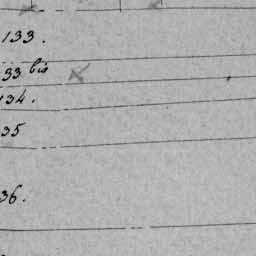 133.
33 bis
134.
35
36.